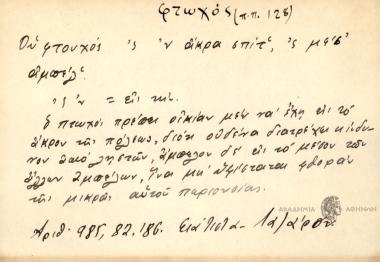 φτωχός (π.π. 128)
Οὑ φτουχός 'ς 'ν ἄκρα σπίτ', 'ς μέσ'
ἀμπέλ'.
'ς 'ν = εἰς τήν.
Ὁ πτωχός πρέπει οἰκίαν μέν νά ἔχῃ εἰς τό
ἄκρον τῆς πόλεως, διότι οὐδένα διατρέχει κίνδυ-
νον ἀπό λῃστῶν, ἄμπελον δέ εἰς τό μέσον τῶν
ἄλλων ἀμπέλων, ἵνα μή ὑφίσταται φθοράν
τῆς μικρᾶς αὐτοῦ περιουσίας.
Ἀριθ. 985, 82, 186. Σιάτιστα - Λαζάρου
ΑΚΑΔΗΜΙΑ ΑΘΗΝΩΝ